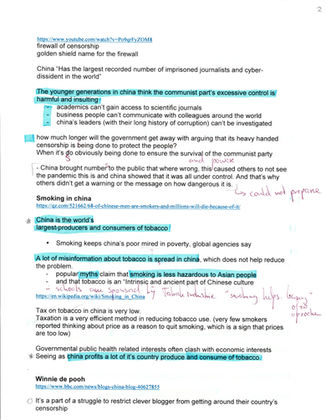 2
https://www.youtube.com/watch?v=Po6grFyZOM8
firewall of censorship
golden shield name for the firewall
China "Has the largest recorded number of imprisoned journalists and cyber-
dissident in the world"
The younger generations in china think the communist part's excessive control is
harmful and insulting:
- academics can't gain access to scientific journals
- business people can't communicate with colleagues around the world
- china's leaders (with their long history of corruption) can't be investigated
how much longer will the government get away with arguing that its heavy handed
censorship is being done to protect the people?
When it's obviously being done to ensure the survival of the communist party
and power
- China brought number to the public that where wrong, this caused others to not see
the pandemic this is and china showed that it was all under control. And that's why
others didn't get a warning or the message on how dangerous it is.
↳ could not prepare
Smoking in china
https://qz.com/521662/68-of-chinese-men-are-smokers-and-millions-will-die-because-of-it/
China is the world's
largest-producers and consumers of tobacco
• Smoking keeps china's poor mired in poverty, global agencies say
A lot of misinformation about tobacco is spread in china, which does not help reduce
the problem.
- popular myths claim that smoking is less hazardous to Asian people
- and that tobacco is an "intrinsic and ancient part of Chinese culture
- schools are sponsored by Tobacco industries "smoking helps
https://en.wikipedia.org/wiki/Smoking_in_China
Tax on tobacco in china is very low.
Taxation is a very efficient method in reducing tobacco use. (very few smokers
reported thinking about price as a reason to quit smoking, which is a sign that prices
are too low)
Governmental public health related interests often clash with economic interests
* Seeing as china profits a lot of it's country produce and consume of tobacco.
Winnie de pooh
https://www.bbc.com/news/blogs-china-blog-40627855
It's a part of a struggle to restrict clever blogger from getting around their country's
censorship